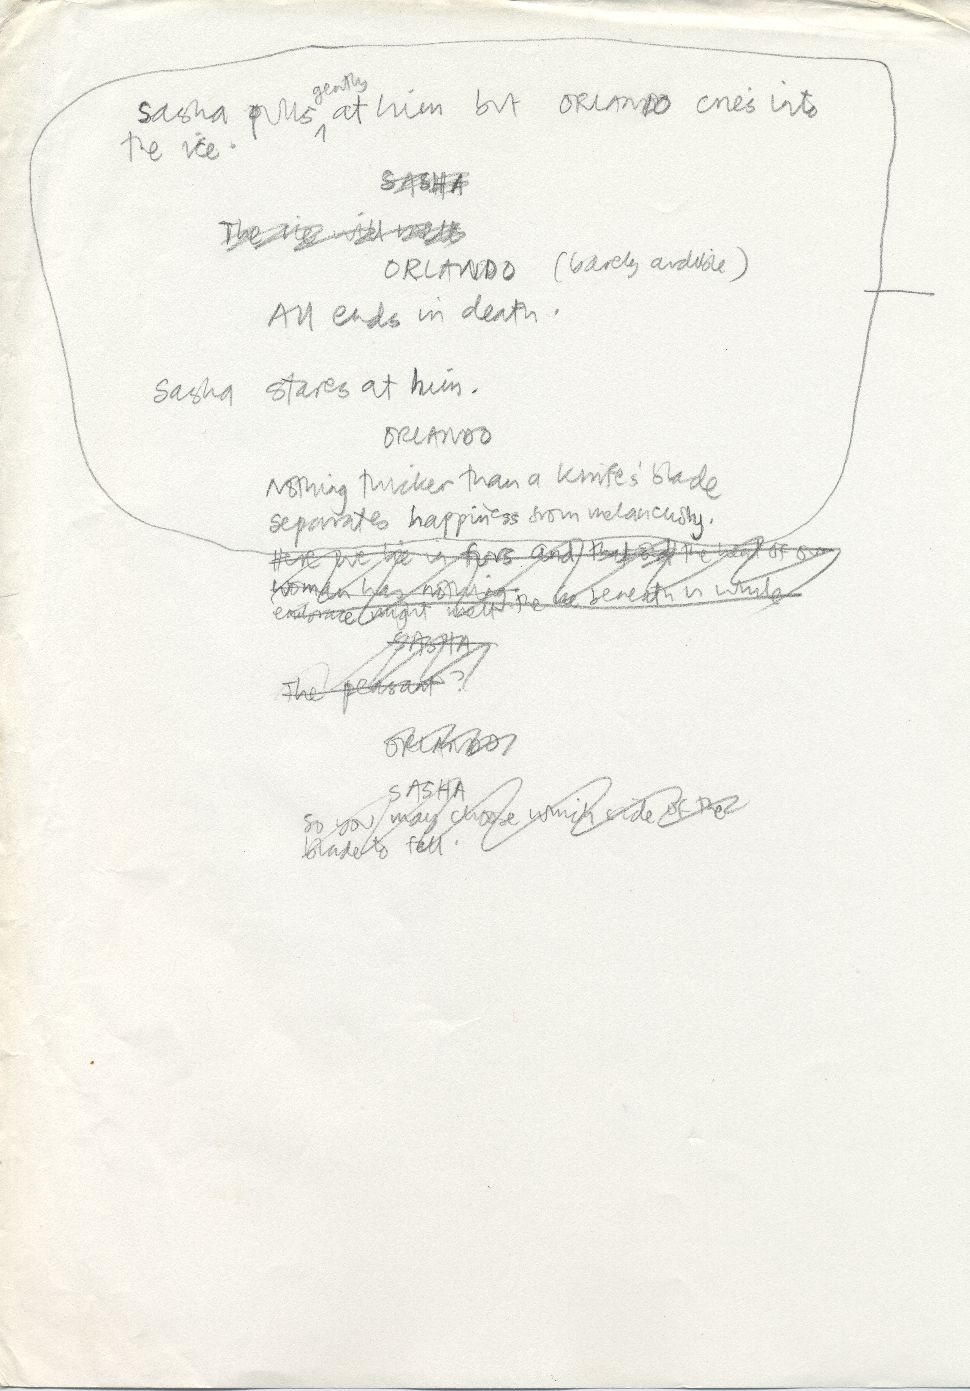 Sasha pulls gently at him but ORLANDO cries into
the ice.
SASHA
The ice will melt
ORLANDO (barely audible)
All ends in death.
Sasha stares at him.
ORLANDO
Nothing thicker than a knife's blade
separates happiness from melancholy.
Here we lie in furs and that the heat of our
woman has nothing. beneath is while
embrace might melt the
SASHA
The peasant?
ORLANDO
SASHA
So you may choose which side of the
blade to fall.